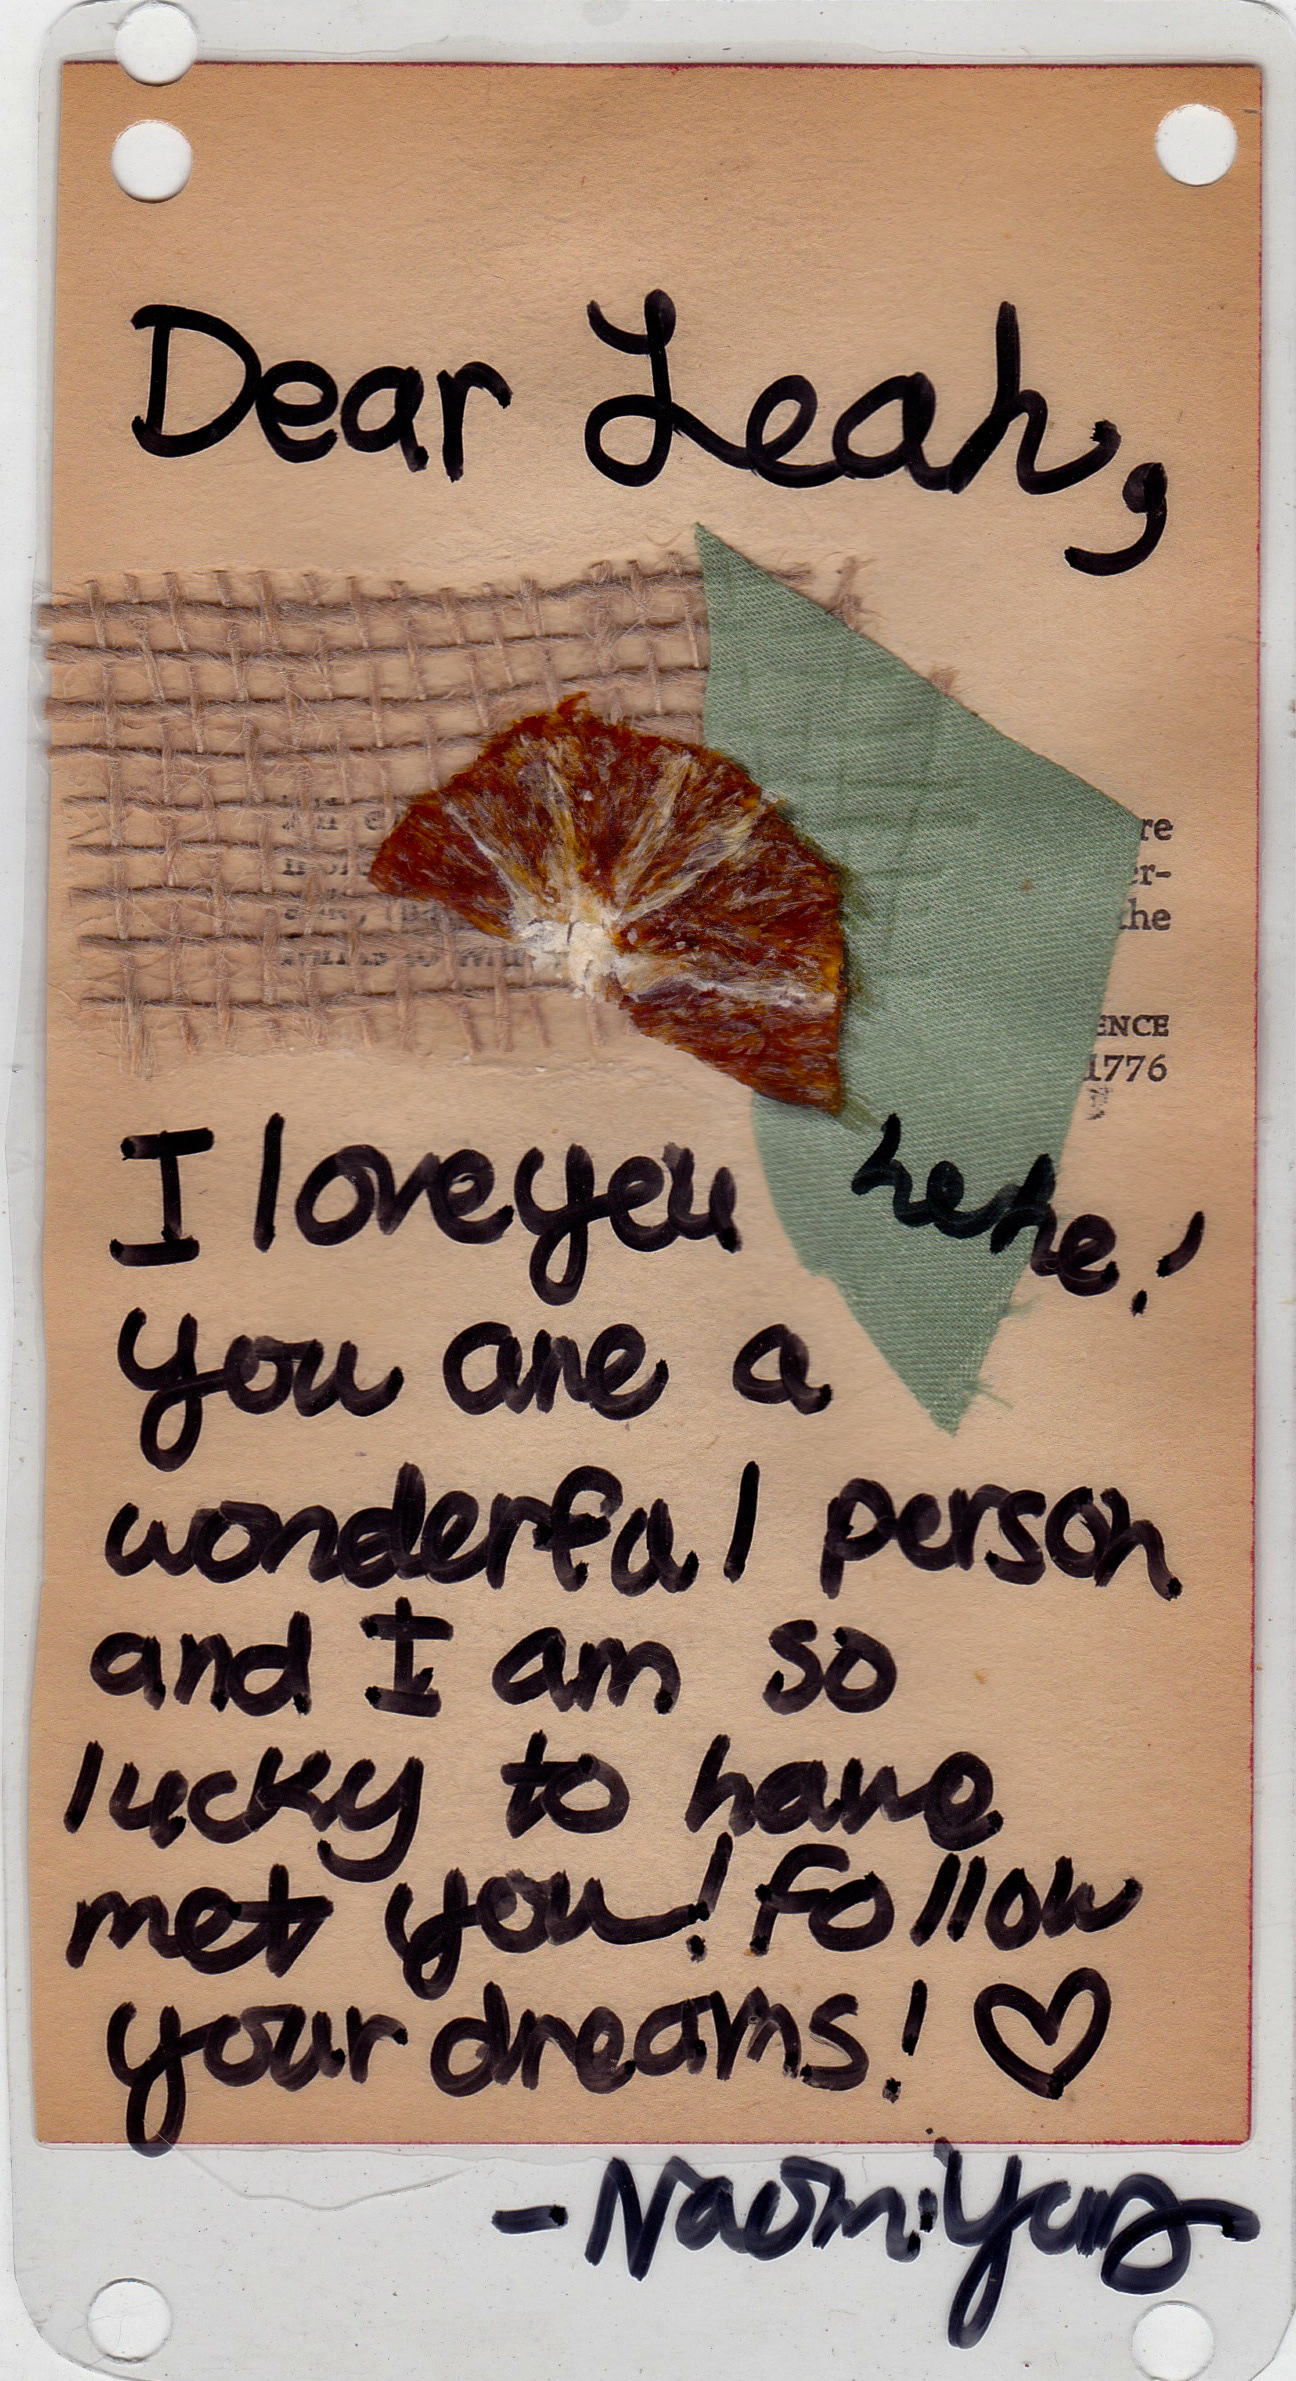 Dear Leah,
re
er-
the
ENCE
1776
I love you hehe!
you are a
wonderful person
and I am so
lucky to have
met you! follow
your dreams! ♡
- Naomi Yang